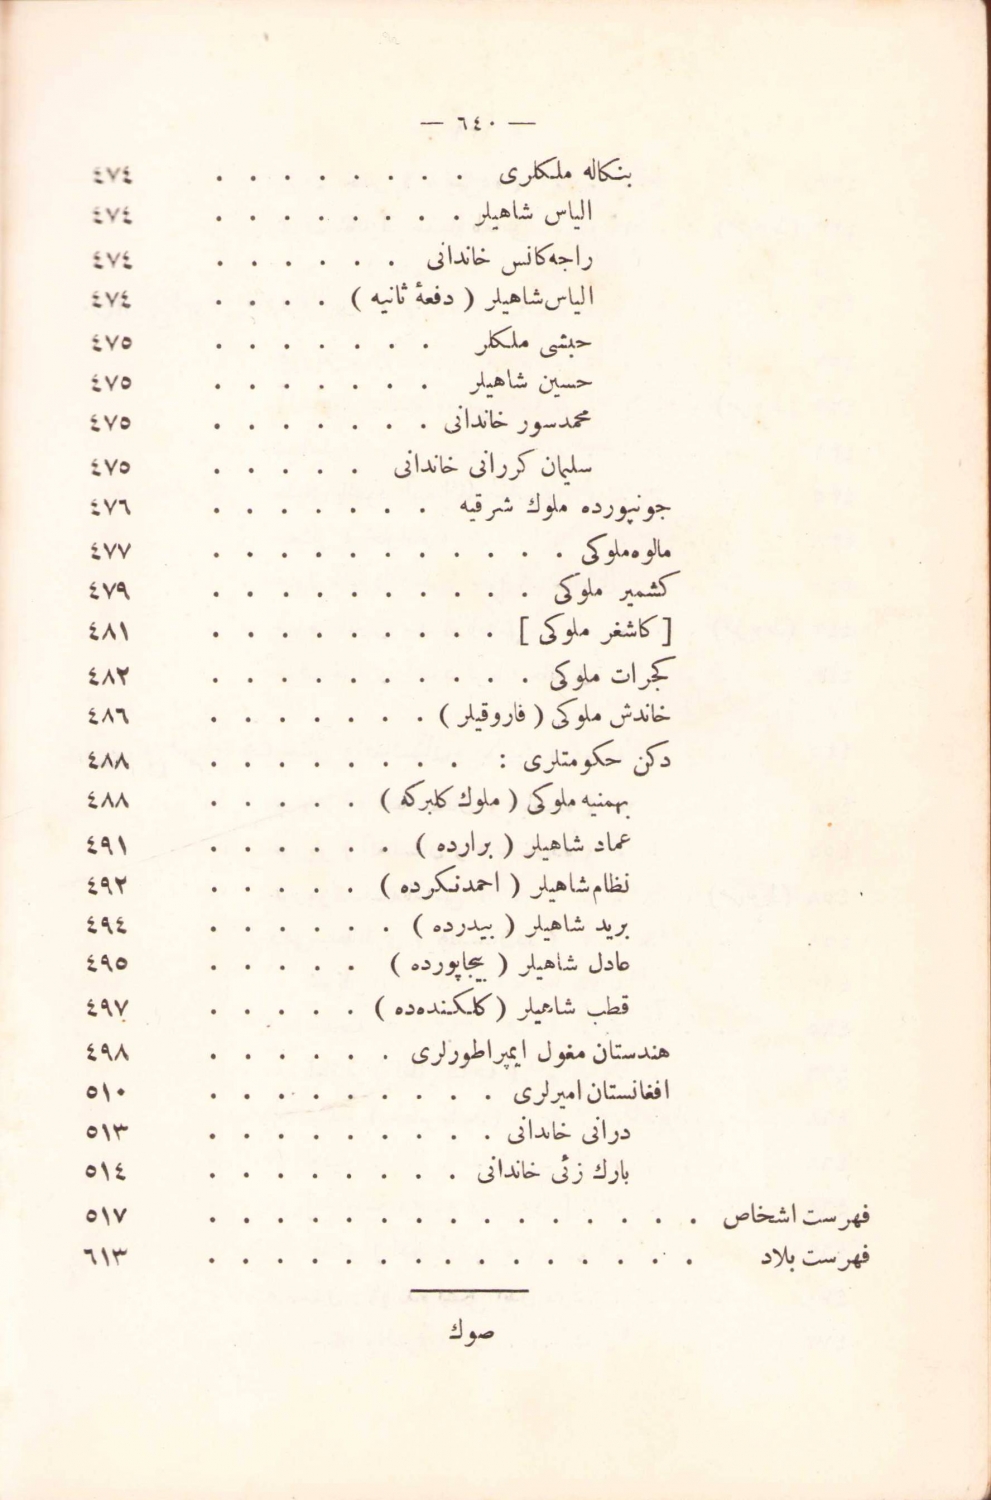 — ٦٤٠ —
بنكاله ملكلرى . . . . . . . . ٤٧٤
الياس شاهيلر . . . . . . . . ٤٧٤
راجه كانس خاندانى . . . . . . ٤٧٤
الياس شاهيلر ( دفعهٔ ثانيه ) . . . . ٤٧٤
حبشى ملكلر . . . . . . . ٤٧٥
حسين شاهيلر . . . . . . . ٤٧٥
محمدسور خاندانى . . . . . . . ٤٧٥
سليمان كررانى خاندانى . . . . . ٤٧٥
جونپورده ملوك شرقيه . . . . . . . ٤٧٦
مالوه ملوكى . . . . . . . . . . . ٤٧٧
كشمير ملوكى . . . . . . . . . . ٤٧٩
[ كاشغر ملوكى ] . . . . . . . . . ٤٨١
كجرات ملوكى . . . . . . . . . . ٤٨٢
خاندش ملوكى ( فاروقيلر ) . . . . . . . ٤٨٦
دكن حكومتلرى : . . . . . . . . ٤٨٨
بهمنيه ملوكى ( ملوك كلبركه ) . . . . . ٤٨٨
عماد شاهيلر ( برارده ) . . . . . . ٤٩١
نظام شاهيلر ( احمدنكرده ) . . . . . ٤٩٢
بريد شاهيلر ( بيدرده ) . . . . . . ٤٩٤
عادل شاهيلر ( بيجاپورده ) . . . . . ٤٩٥
قطب شاهيلر ( كلكنده‌ده ) . . . . . ٤٩٧
هندستان مغول ايمپراطورلرى . . . . . . ٤٩٨
افغانستان اميرلرى . . . . . . . . . ٥١٠
درانى خاندانى . . . . . . . . . ٥١٣
بارك زئى خاندانى . . . . . . . . ٥١٤
فهرست اشخاص . . . . . . . . . . . . . . . ٥١٧
فهرست بلاد . . . . . . . . . . . . . . . ٦١٣
صوك